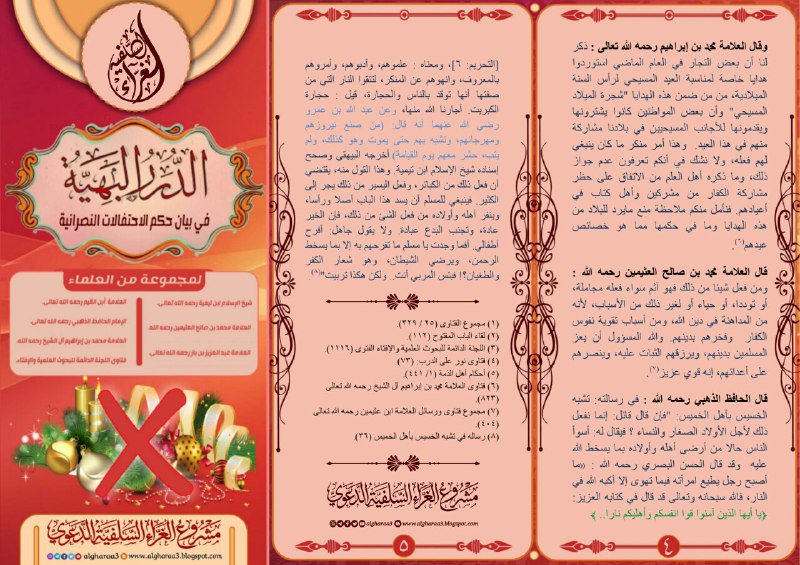 الغراء السلفية
الدُّرَرُ البَهِيَّة
في بيان حكم الاحتفالات النصرانية
لمجموعة من العلماء
شيخ الإسلام ابن تيمية رحمه الله تعالى.
العلامة ابن القيم رحمه الله تعالى.
العلامة محمد بن صالح العثيمين رحمه الله.
الإمام الحافظ الذهبي رحمه الله.
العلامة عبد العزيز بن باز رحمه الله تعالى.
العلامة محمد بن إبراهيم آل الشيخ رحمه الله.
فتاوى اللجنة الدائمة للبحوث العلمية والإفتاء.
مشروع الغراء السلفية الدعوي
algharaa3 www.algharaa3.blogspot.com
وقال العلامة محمد بن إبراهيم رحمه الله تعالى : ذكر
لنا أن بعض التجار في العام الماضي استوردوا
هدايا خاصة لمناسبة العيد المسيحي لرأس السنة
الميلادية، من من ضمن هذه الهدايا "شجرة الميلاد
المسيحي" وأن بعض المواطنين كانوا يشترونها
ويقدمونها للأجانب المسيحيين في بلادنا مشاركة
منهم في هذا العيد. وهذا أمر منكر ما كان ينبغي
لهم فعله، ولا نشك في أنكم تعرفون عدم جواز
ذلك، وما ذكره أهل العلم من الاتفاق على حظر
مشاركة الكفار من مشركين وأهل كتاب في
أعيادهم. فنأمل منكم ملاحظة منع مايرد للبلاد من
هذه الهدايا وما في حكمها مما هو خصائص
عيدهم(٦).
قال العلامة محمد بن صالح العثيمين رحمه الله :
ومن فعل شيئا من ذلك فهو آثم سواء فعله مجاملة،
أو توددا، أو حياء أو لغير ذلك من الأسباب، لأنه
من المداهنة في دين الله، ومن أسباب تقوية نفوس
الكفار وفخرهم بدينهم. والله المسؤول أن يعز
المسلمين بدينهم، ويرزقهم الثبات عليه، وينصرهم
على أعدائهم، إنه قوي عزيز(٧).
قال الحافظ الذهبي رحمه الله : فى رسالته: تشبه
الخسيس بأهل الخميس: "فإن قال قائل: إنما نفعل
ذلك لأجل الأولاد الصغار والنساء ؟ فيقال له: أسوأ
الناس حالا من أرضى أهله وأولاده بما يسخط الله
عليه وقد قال الحسن البصري رحمه الله : «ما
أصبح رجل يطيع امرأته فيما تهوى إلا أكبه الله في
النار، فالله سبحانه وتعالى قد قال في كتابه العزيز:
﴿يا أيها الذين آمنوا قوا انفسكم وأهليكم نارا.. ﴾
٤
[التحريم: ٦]، ومعناه : علموهم، وأدبوهم، وأمروهم
بالمعروف، وانهوهم عن المنكر، لتتقوا النار التي من
صفتها أنها توقد بالناس والحجارة، قيل : حجارة
الكبريت. أجارنا الله منها، وعن عبد الله بن عمرو
رضي الله عنهما أنه قال: (من صنع نيروزهم
ومهرجانهم، وتشبه بهم حتى يموت وهو كذلك، ولم
يتب، حشر معهم يوم القيامة) أخرجه البيهقي وصحح
إسناده شيخ الإسلام ابن تيمية. وهذا القول منه، يقتضي
أن فعل ذلك من الكبائر، وفعل اليسير من ذلك يجر إلى
الكثير. فينبغي للمسلم أن يسد هذا الباب أصلا ورأسا،
وينفر أهله وأولاده من فعل الشئ من ذلك، فإن الخير
عادة، وتجنب البدع عبادة. ولا يقول جاهل: أفرح
أطفالي. أفما وجدت يا مسلم ما تفرحهم به إلا بما يسخط
الرحمن، ويرضي الشيطان، وهو شعار الكفر
والطغيان؟! فبئس المربي أنت.. ولكن هكذا تربيت"(٨)
(١) مجموع الفتاوى (٢٥ / ٣٢٩)
(٢) لقاء الباب المفتوح (١١٢)
(٣) اللجنة الدائمة للبحوث العلمية والإفتاء الفتوى (١١١٦).
(٤) فتاوى نور على الدرب: (٧٣).
(٥) أحكام أهل الذمة (١/ ٤٤١).
(٦) فتاوى العلامة محمد بن إبراهيم آل الشيخ رحمه الله تعالى
(٨٢٣)
(٧) مجموع فتاوى ورسائل العلامة ابن عثيمين رحمه الله تعالى
(٤٠٤).
(٨) رساله في تشبه الخسيس بأهل الخميس (٣٦).
مشروع الغراء السلفية الدعوي
algharaa3 www.algharaa3.blogspot.com
٥